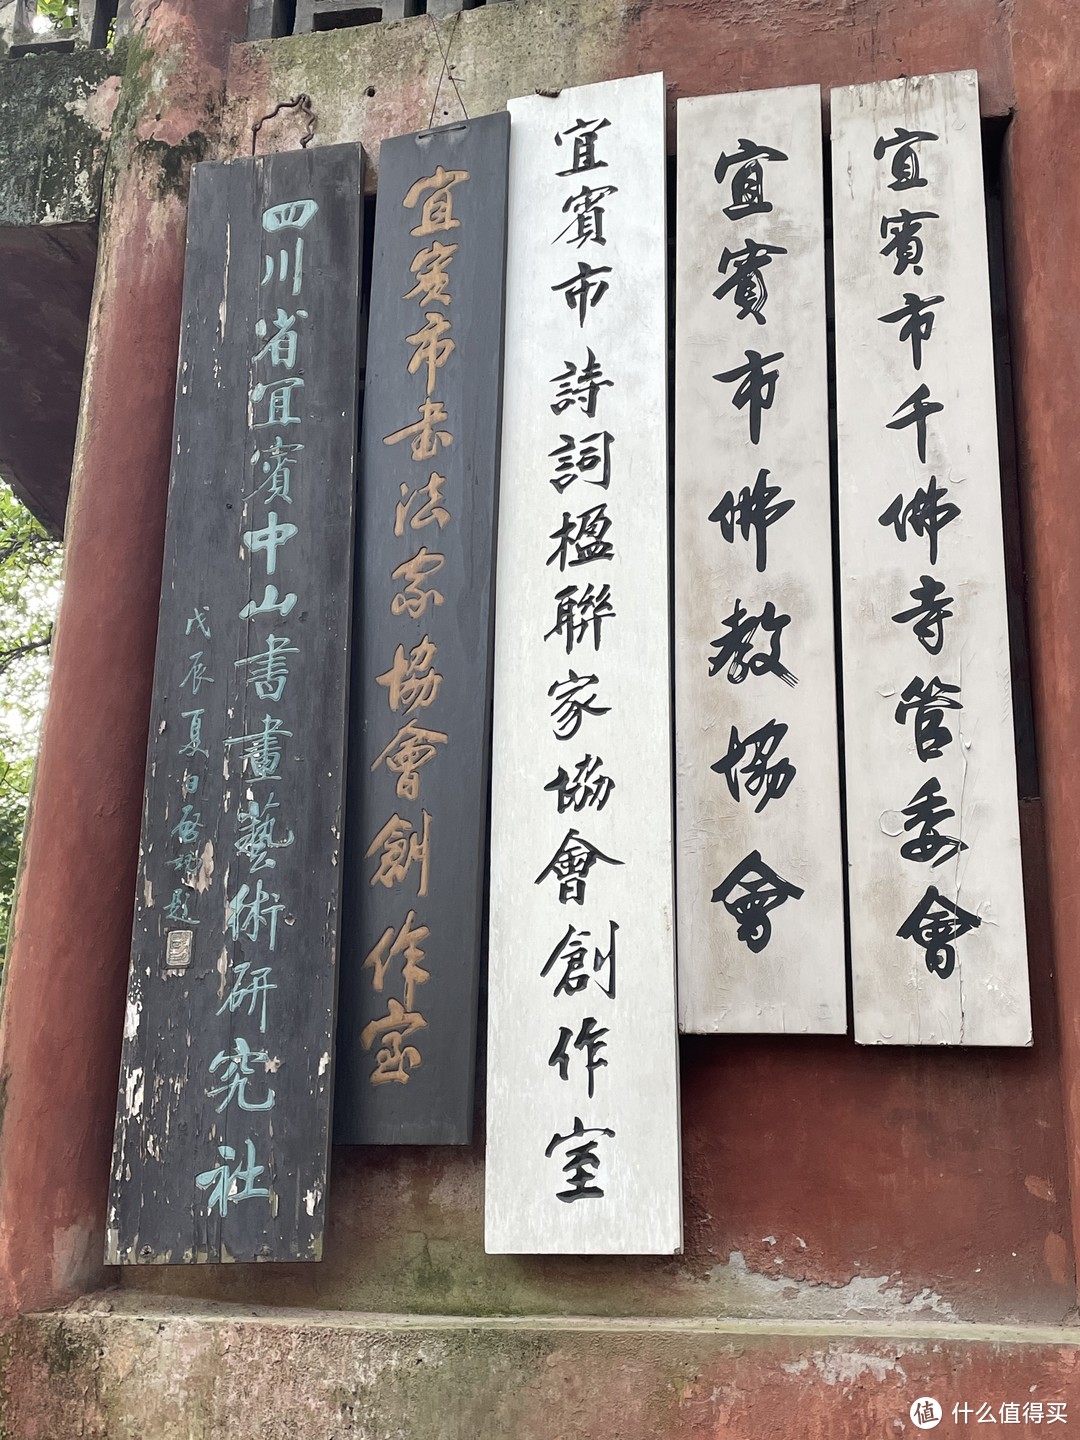 四川省宜賓中山書畫藝術研究社
戊辰夏日啓功題
宜賓市书法家協會創作室
宜賓市詩詞楹聯家協會創作室
宜賓市佛教協會
宜賓市千佛寺管委會
值 什么值得买